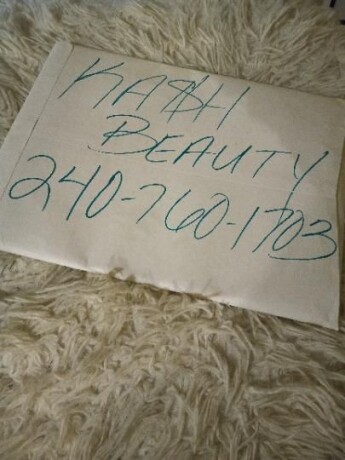 KA$H
BEAUTY
240-760-1703